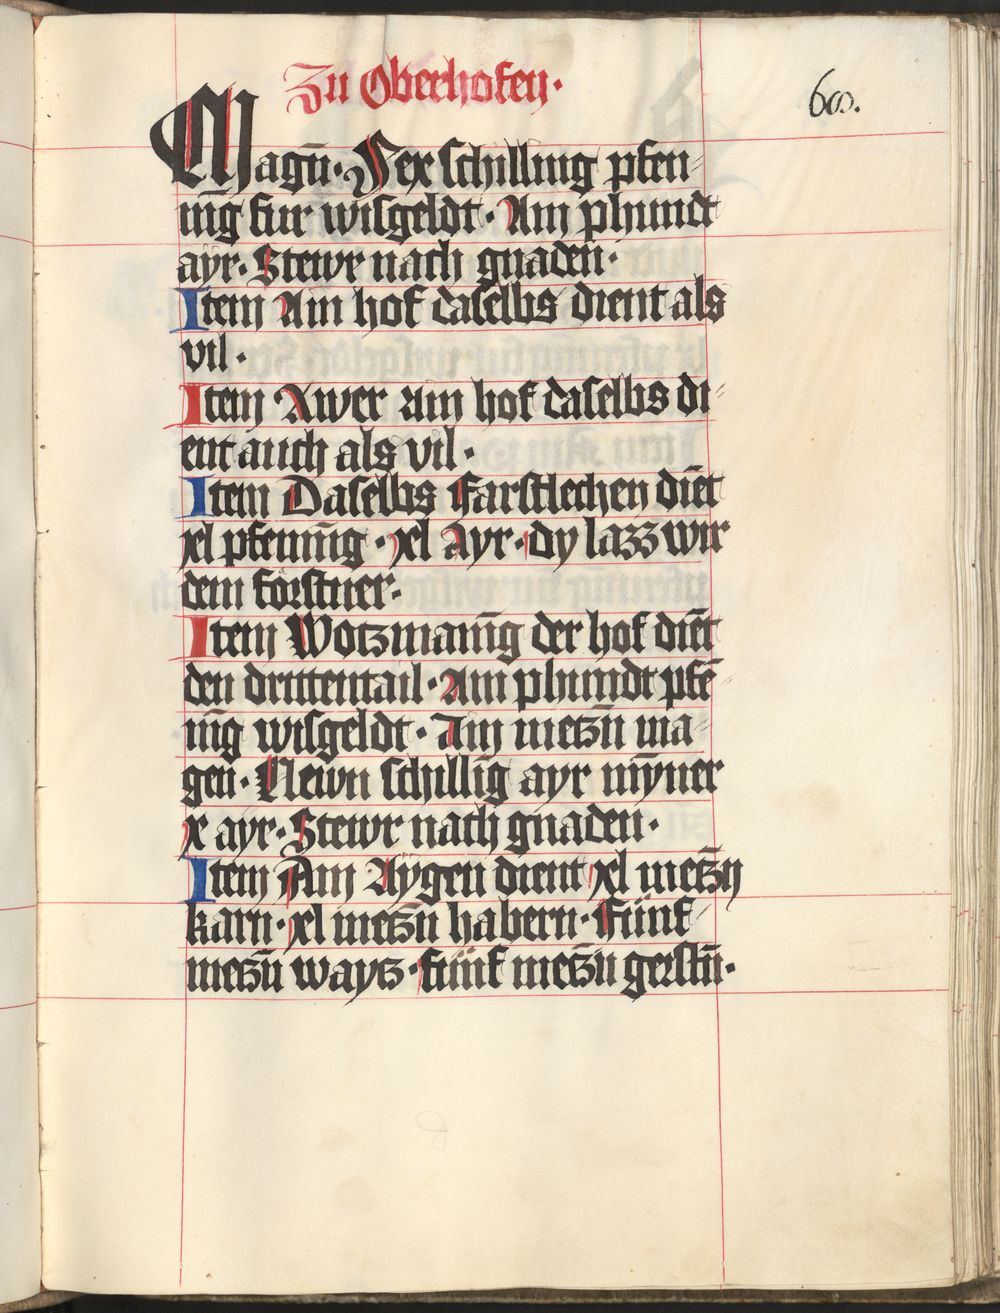 Zu Oberhofen·
60.
Magn̄· Sex schilling pfen-
nīg fur wisgeldt· Ain phundt
aÿr· Stewr nach gnaden·
Item Ain hof daselbs dient als
vil·
Item Awer ain hof daselbs di-
ent auch als vil·
Item Daselbs Farstlechen diēt
xl pfennīg· xl Ayr· dy lazz wir
dem forstner·
Item Wotzmanīg der hof diēt
den drittentail· Ain phundt pfē
nīg wisgeldt· Ain metzn̄ ma-
gen· Newn schillīg ayr mȳner
x ayr· Stewr nach gnaden·
Item Ain Aÿgen dient xl metzn̄
karn· xl metzn̄ habern· Fünf
metzn̄ waytz· fünf metzn̄ gerstn̄·